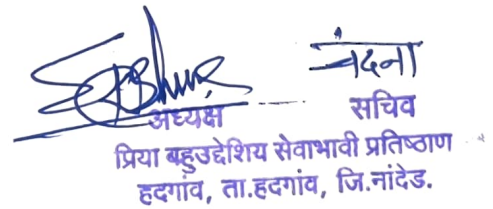 वंदना
अध्यक्ष सचिव
प्रिया बहुउद्देशिय सेवाभावी प्रतिष्ठाण
हदगांव, ता.हदगांव, जि.नांदेड.